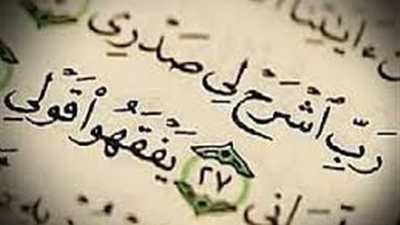 ءايتنا
رَبِّ ٱشْرَحْ لِي صَدْرِي
يَفْقَهُوا۟ قَوْلِي ٢٧